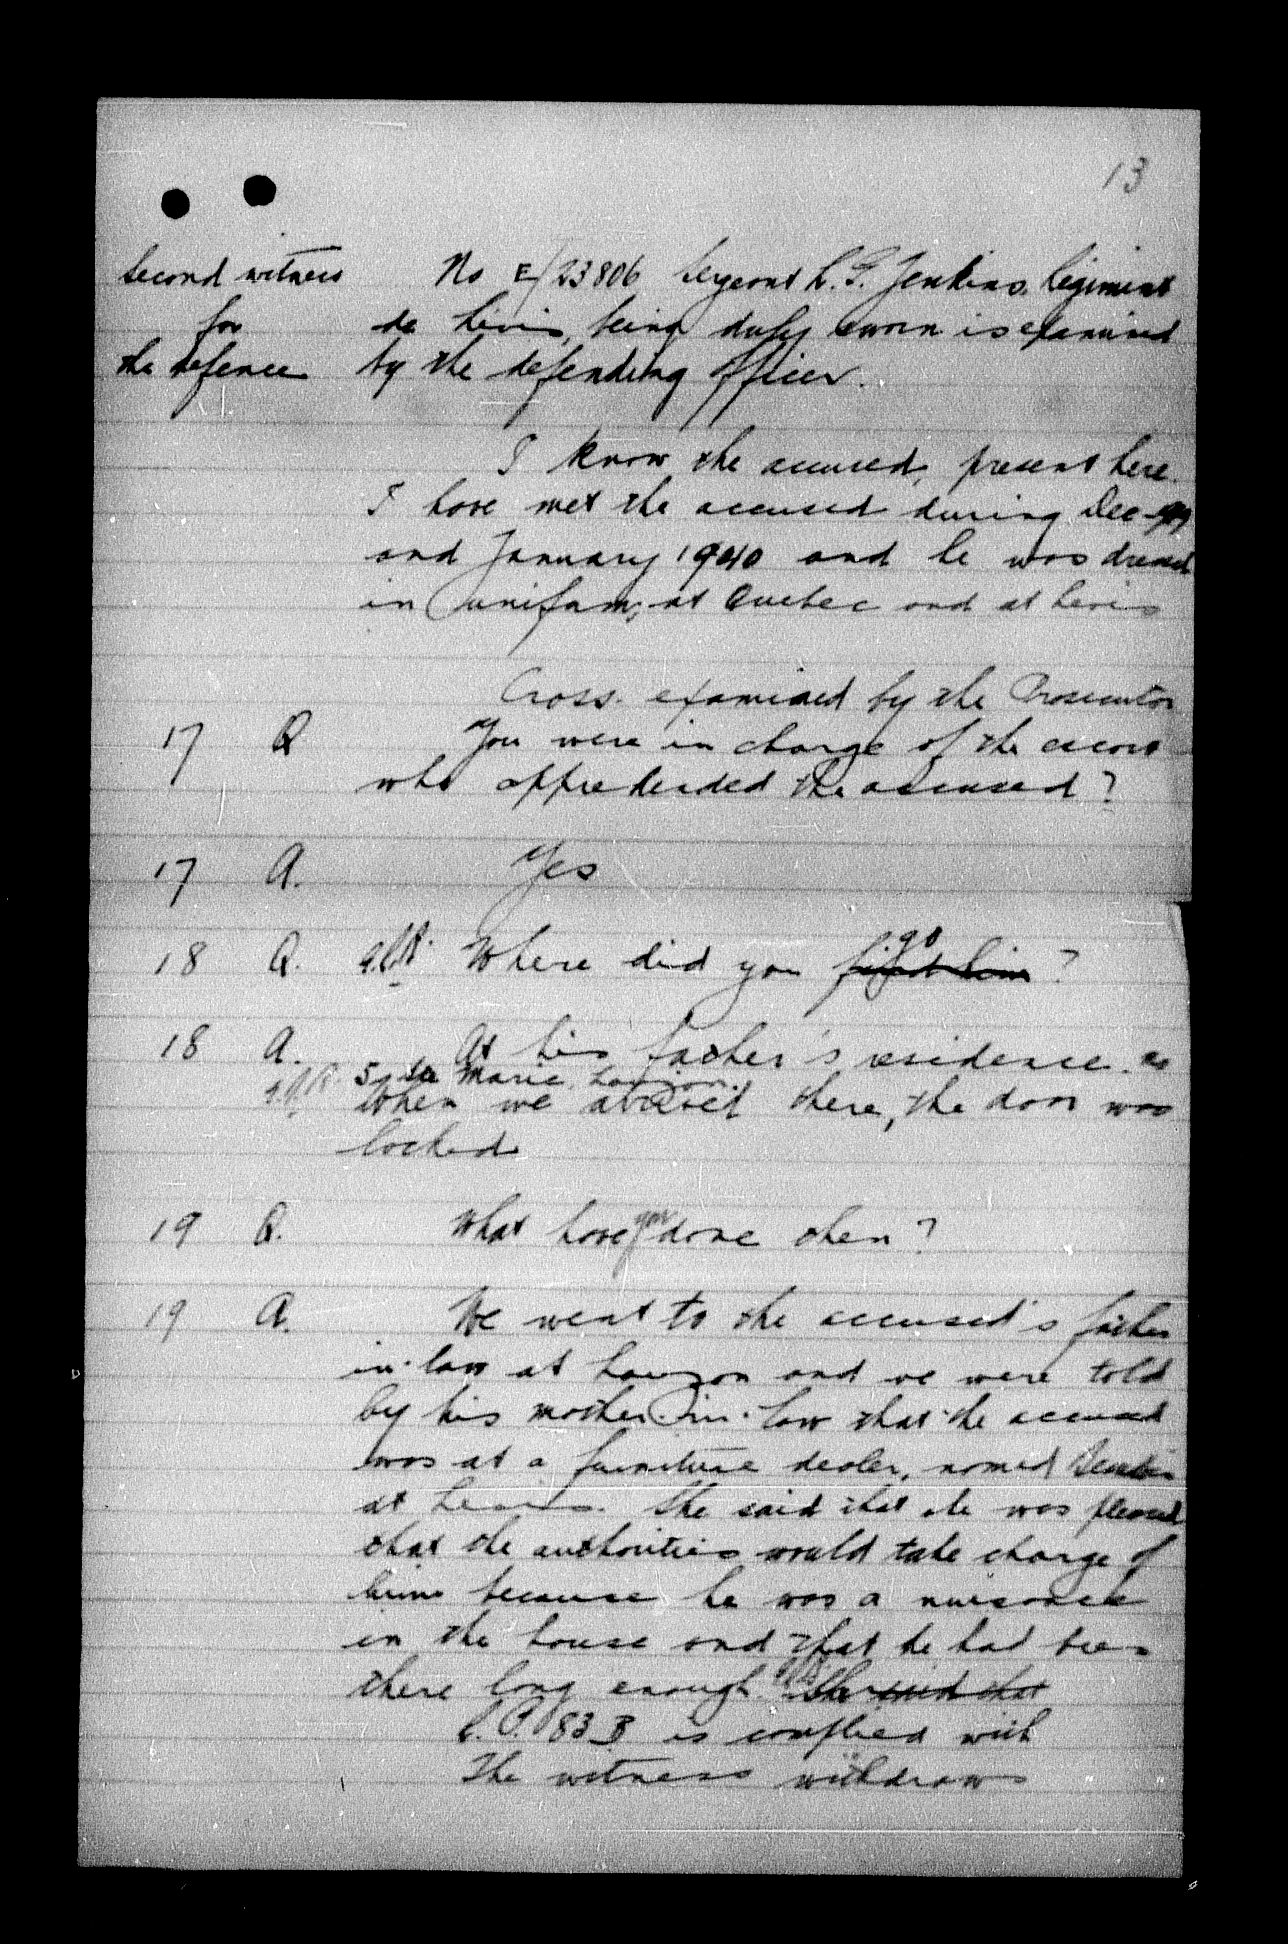 13
Second witness No E/23806 Sergeant L. G. Jenkins, Regiment
for de Levis, being duly sworn is examined
the defence by the defending officer.
I know the accused, present here.
I have met the accused during Dec
and January 1940 and he was dressed
in uniform, at Quebec and at Levis
Cross-examined by the Prosecutor
17 Q You were in charge of the escort
who apprehended the accused?
17 A. Yes
18 Q. Where did you find him go ?
18 A. At his father's residence. no
5 Ste Marie, Lauzon.
When we arrived there, the door was
locked
19 Q. What have you done then?
19 A. We went to the accused's father
in-law at Lauzon and we were told
by his mother-in-law that the accused
was at a furniture dealer, named
at Levis. She said that she was pleased
that the authorities would take charge of
him because he was a nuisance
in the house and that he had been
there long enough. She said that
R.P. 83 B is complied with
The witness withdraws